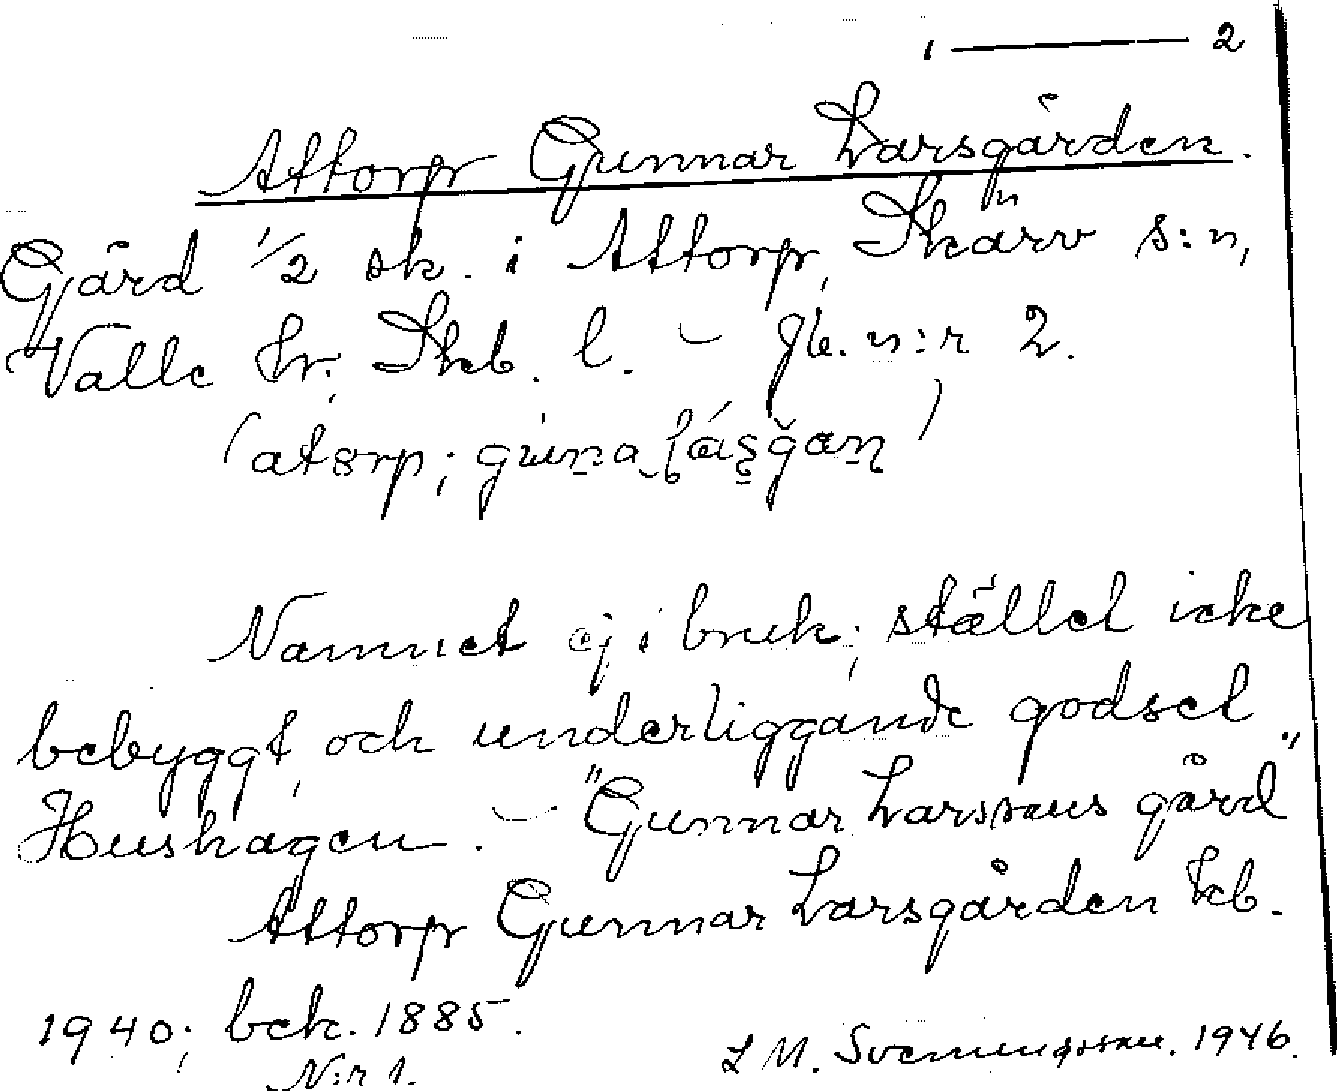 1 — 2
Attorp Gunnar Larsgården.
Gård 1/2 sk. i Attorp, Skärv s:n,
Valle hd; Skb. l. – Jb. n:r 2.
(atorp; guna lásgan)
Namnet ej i bruk; stället icke
bebyggt, och underliggande godset
Hushagen. – "Gunnar Larssons gård"
Attorp Gunnar Larsgården kb.
1940; bek. 1885.
N:r 1.
L M. Svenungsson. 1946.